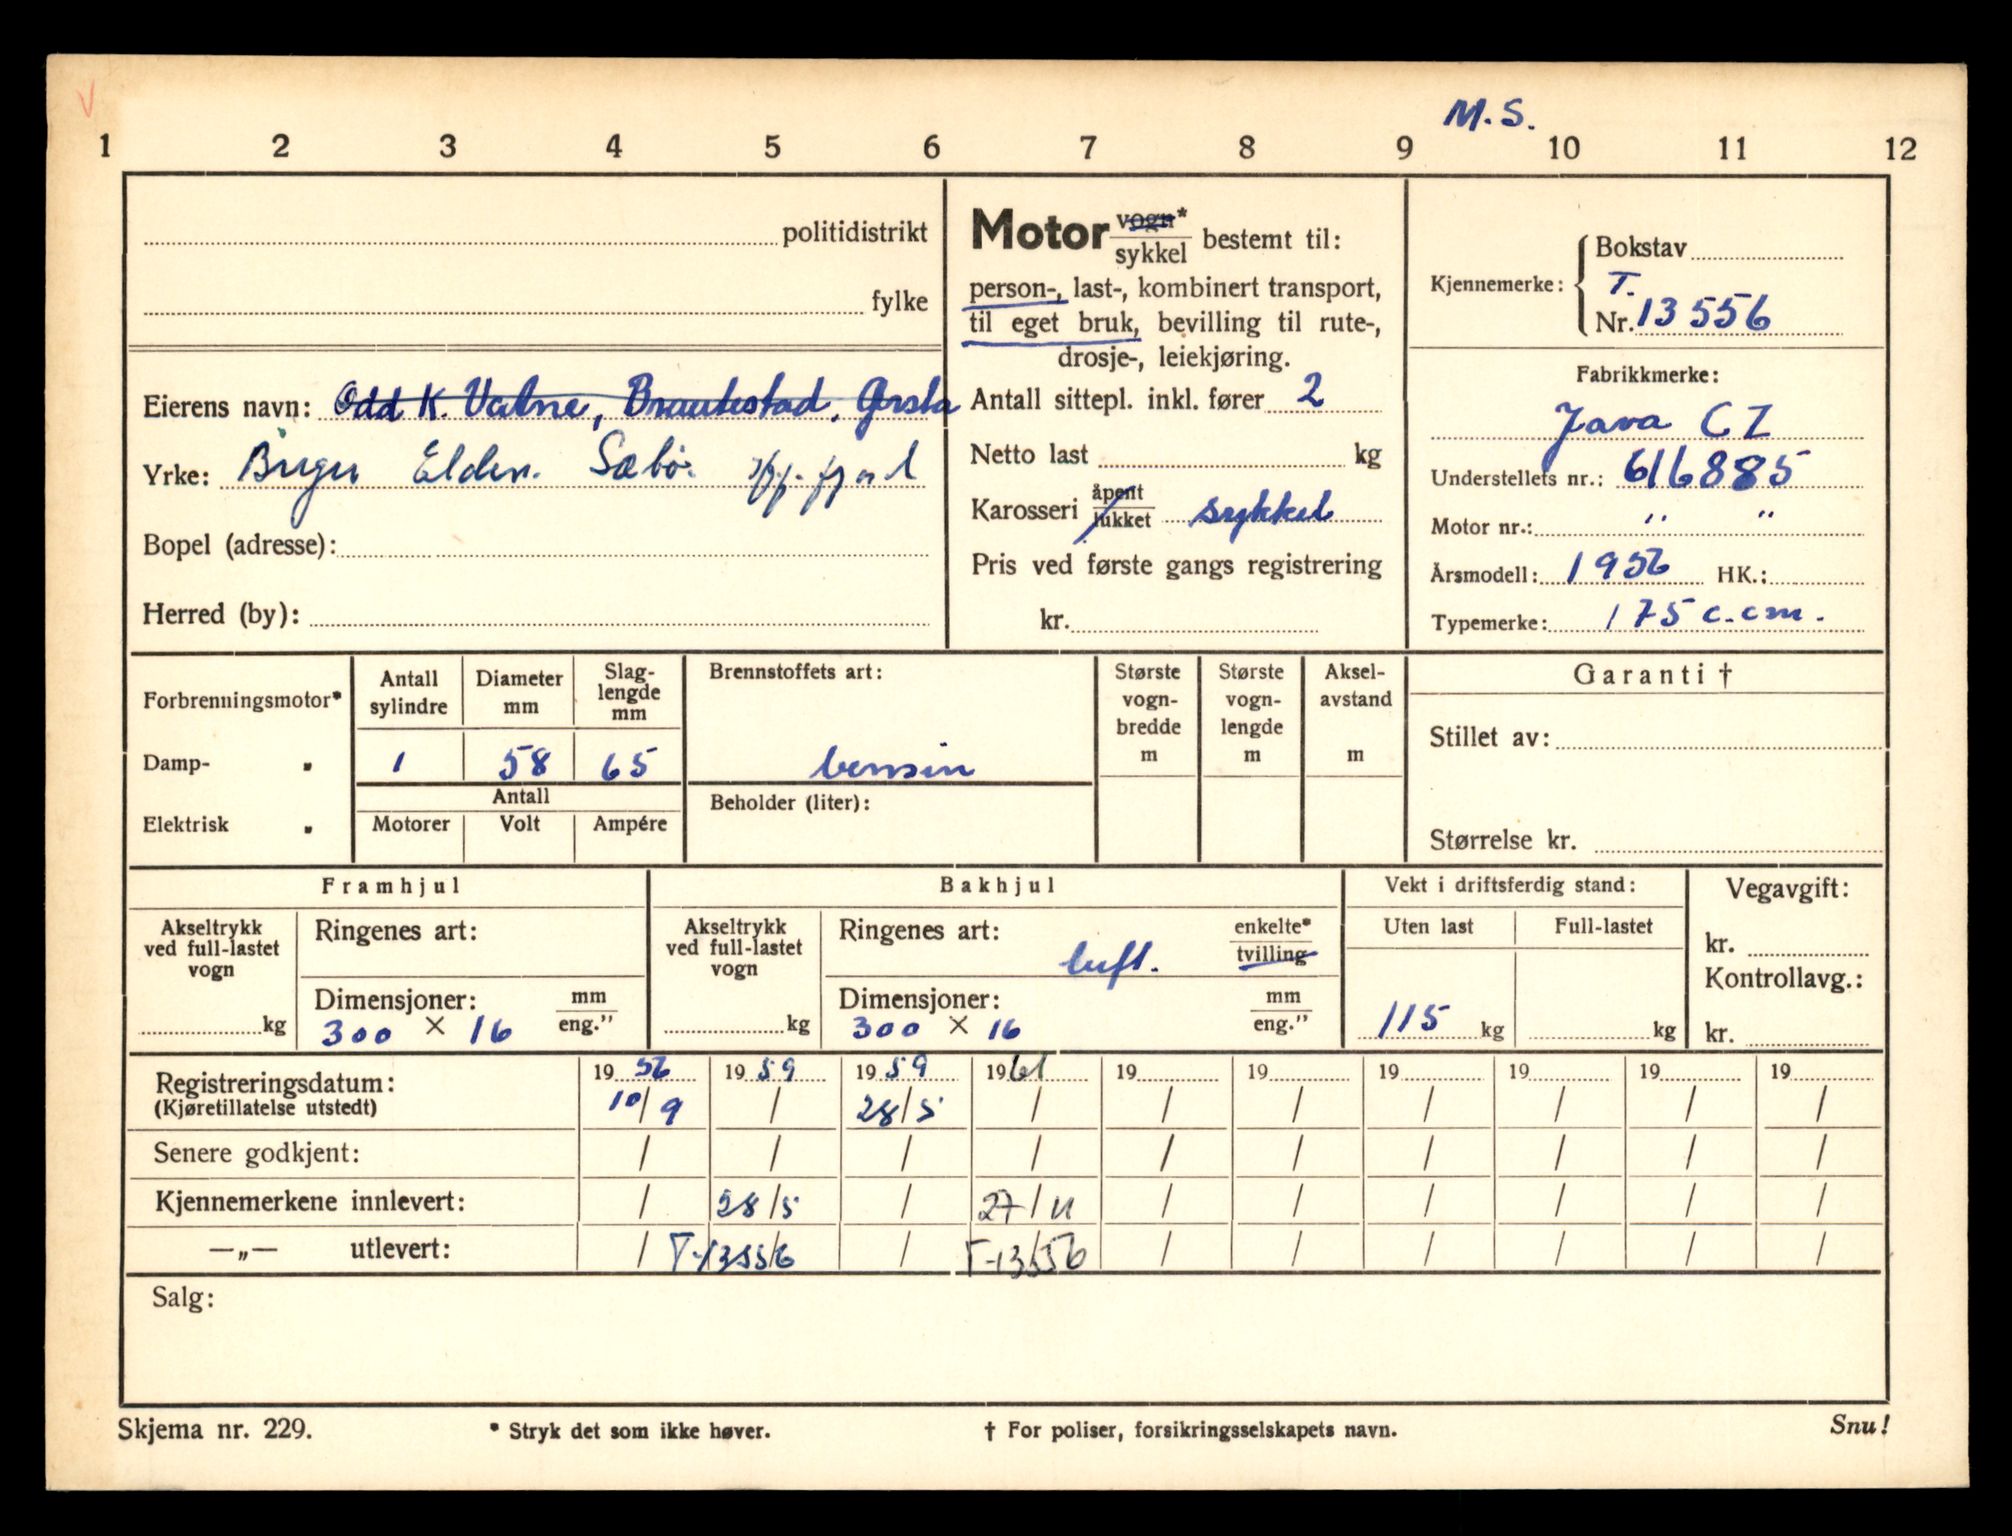 V
M. S.
1 2 3 4 5 6 7 8 9 10 11 12
politidistrikt
fylke
Eierens navn: Odd K. Vatne, Brautestad, Ørsta
Yrke: Birger Elden. Sæbø.
Bopel (adresse):
Herred (by):
Motor vogn*
sykkel bestemt til:
person-, last-, kombinert transport,
til eget bruk, bevilling til rute-,
drosje-, leiekjøring.
Antall sittepl. inkl. fører 2
Netto last kg
Karosseri åpent
lukket sykkel
Pris ved første gangs registrering
kr.
Kjennemerke: Bokstav
T.
Nr. 13556
Fabrikkmerke:
Java CZ
Understellets nr.: 616885
Motor nr.: " "
Årsmodell: 1956 HK.:
Typemerke: 175 c.cm.
Forbrenningsmotor*
Damp- "
Elektrisk "
Antall sylindre
1
Diameter mm
58
Slag-
lengde
mm
65
Antall
Motorer Volt Ampére
Brennstoffets art:
bensin
Beholder (liter):
Største
vogn-
bredde
m
Største
vogn-
lengde
m
Aksel-
avstand
m
Garanti †
Stillet av:
Størrelse kr.
Framhjul
Akseltrykk
ved full-lastet
vogn
kg
Ringenes art:
Dimensjoner: mm
300 × 16 eng."
Bakhjul
Akseltrykk
ved full-lastet
vogn
kg
Ringenes art: enkelte*
luft. tvilling
Dimensjoner: mm
300 × 16 eng."
Vekt i driftsferdig stand:
Uten last Full-lastet
115 kg kg
Vegavgift:
kr.
Kontrollavg.:
kr.
Registreringsdatum: 19 56 19 59 19 59 19 61 19 19 19 19 19 19
(Kjøretillatelse utstedt) 10/9 / 28/5 / / / / / / /
Senere godkjent: / / / / / / / / / /
Kjennemerkene innlevert: / 28/5 / 27/11 / / / / / /
—„— utlevert: / T-13556 / T-13556 / / / / / /
Salg:
Skjema nr. 229. * Stryk det som ikke høver. † For poliser, forsikringsselskapets navn. Snu!